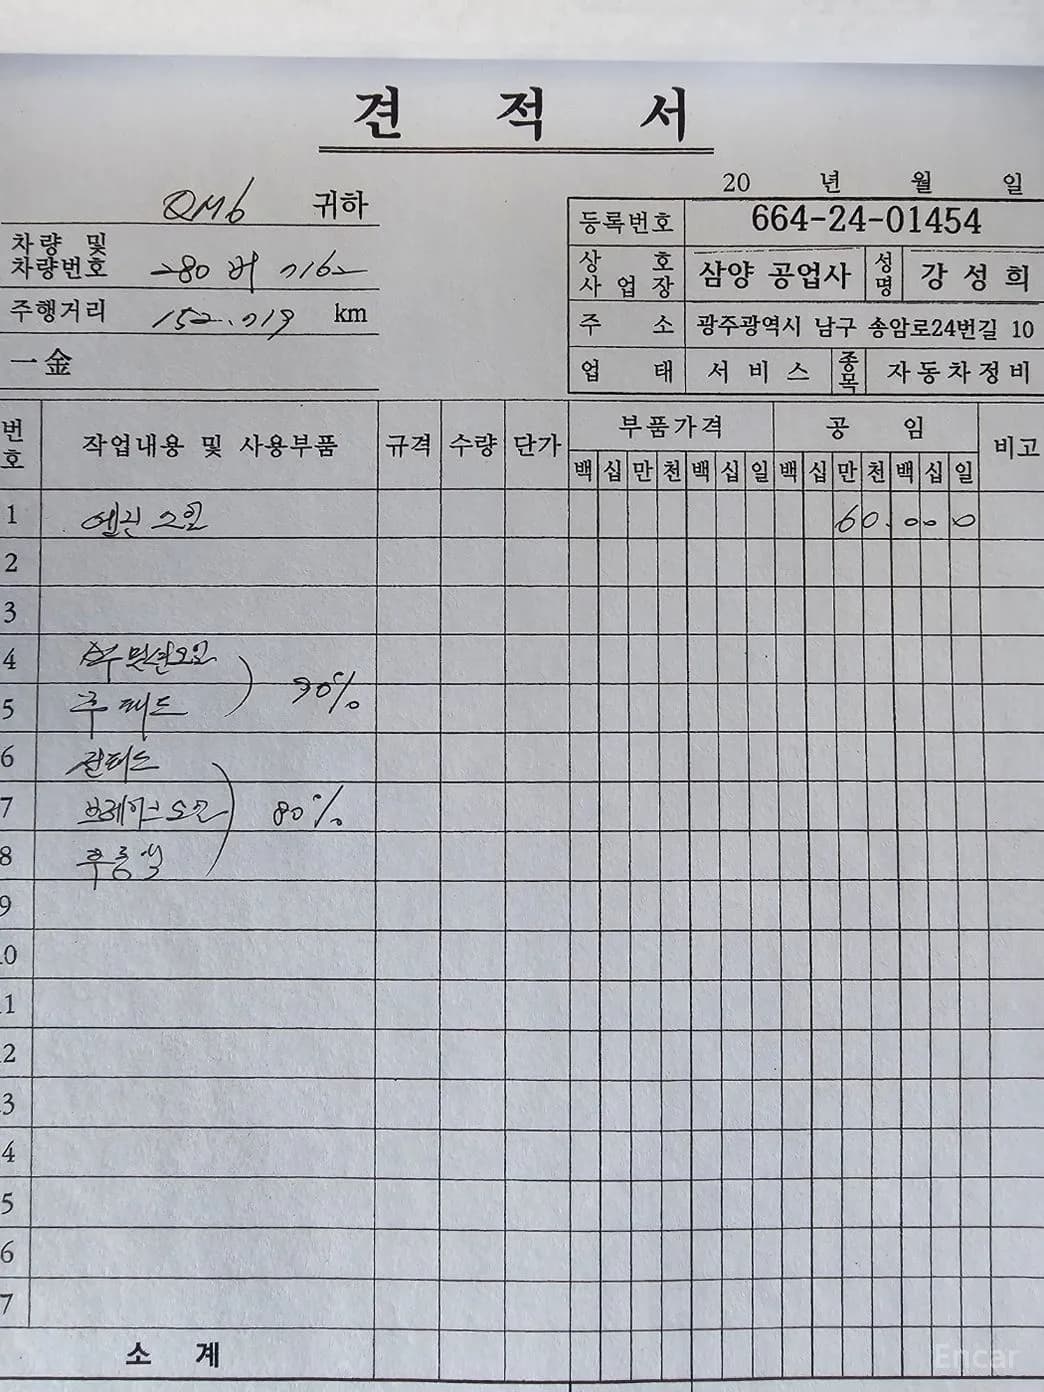 견 적 서
20 년 월 일
QM6 귀하
등록번호 664-24-01454
차량 및
차량번호 280 버 7162
상 호
사 업 장 삼양 공업사 성명 강 성 희
주행거리 152.719 km
주 소 광주광역시 남구 송암로24번길 10
一金
업 태 서 비 스 종목 자동차정비
번호 작업내용 및 사용부품 규격 수량 단가 부품가격 공 임 비고
백 십 만 천 백 십 일 백 십 만 천 백 십 일
1 엔진오일 60.000
2
3
4 미션오일
5 후 패드 90%
6
7 브레이크오일 80%
8
9
10
11
12
13
14
15
16
17
소 계
Encar